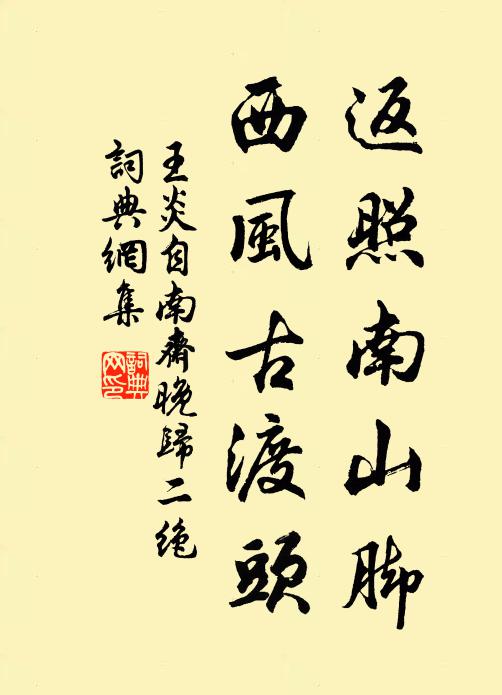 返照南山脚
西風古渡頭
王炎自南齋晚歸二絶
詞典網集
詞典網印